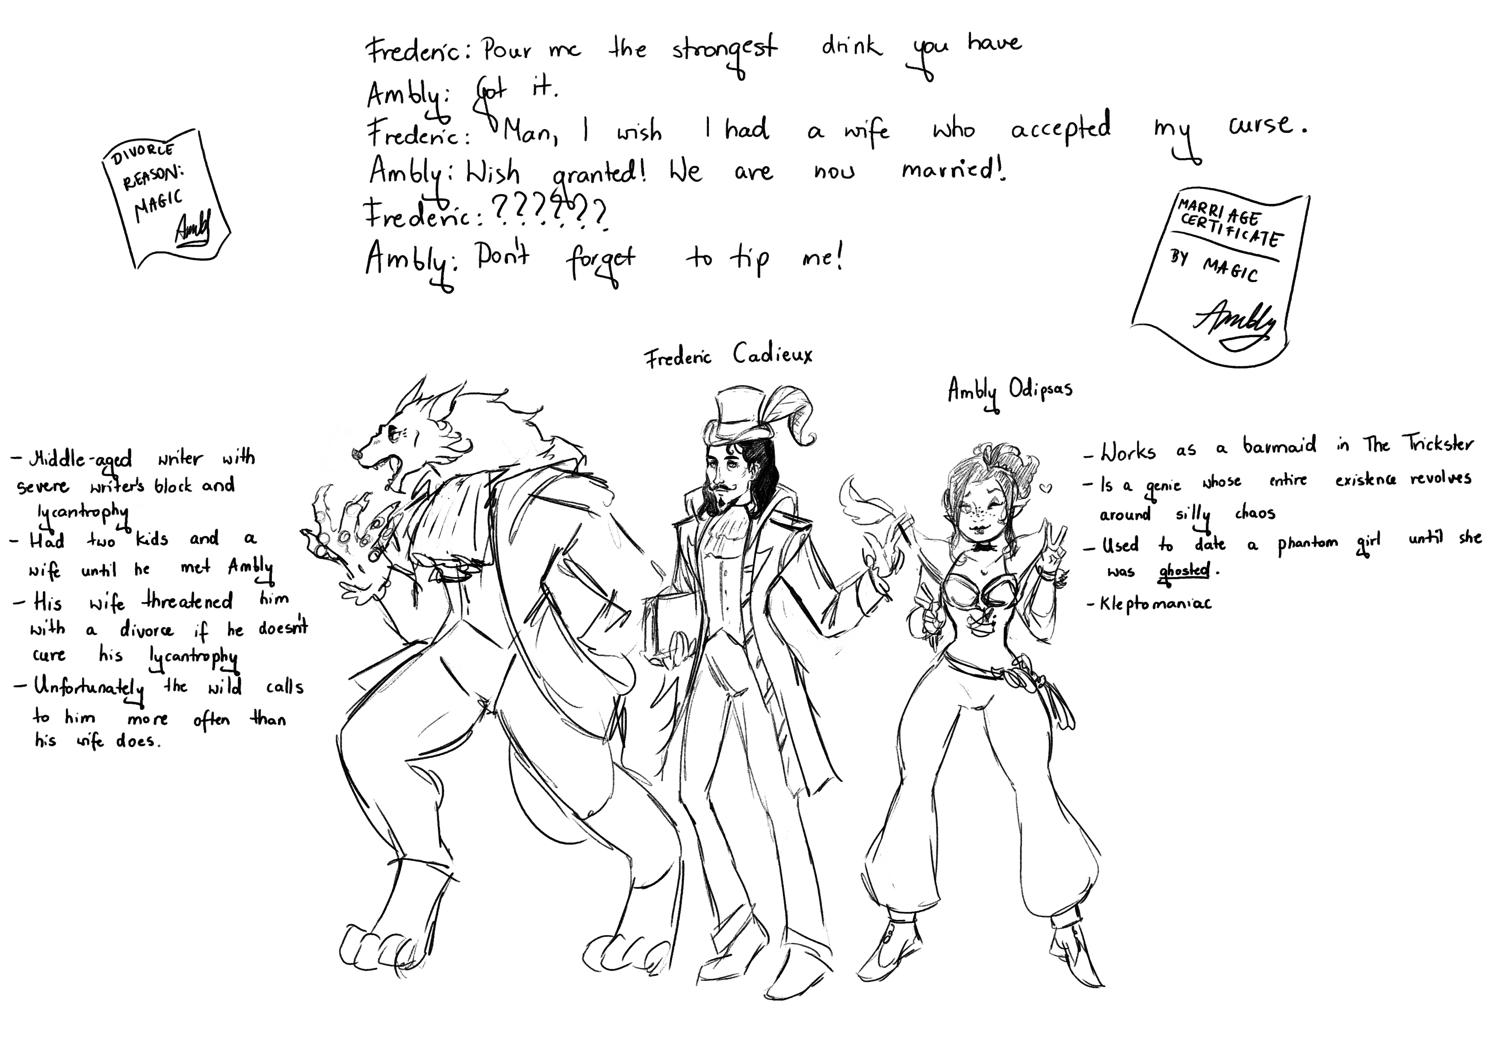 Frederic: Pour me the strongest drink you have
Ambly: Got it.
Frederic: Man, I wish I had a wife who accepted my curse.
Ambly: Wish granted! We are now married!
Frederic: ??????
Ambly: Don't forget to tip me!
DIVORCE
REASON:
MAGIC
Ambly
MARRIAGE
CERTIFICATE
BY MAGIC
Ambly
Frederic Cadieux
Ambly Odipsas
- Middle-aged writer with
severe writer's block and
lycantrophy
- Had two kids and a
wife until he met Ambly
- His wife threatened him
with a divorce if he doesn't
cure his lycantrophy
- Unfortunately the wild calls
to him more often than
his wife does.
- Works as a barmaid in The Trickster
- Is a genie whose entire existence revolves
around silly chaos
- Used to date a phantom girl until she
was ghosted.
- Kleptomaniac